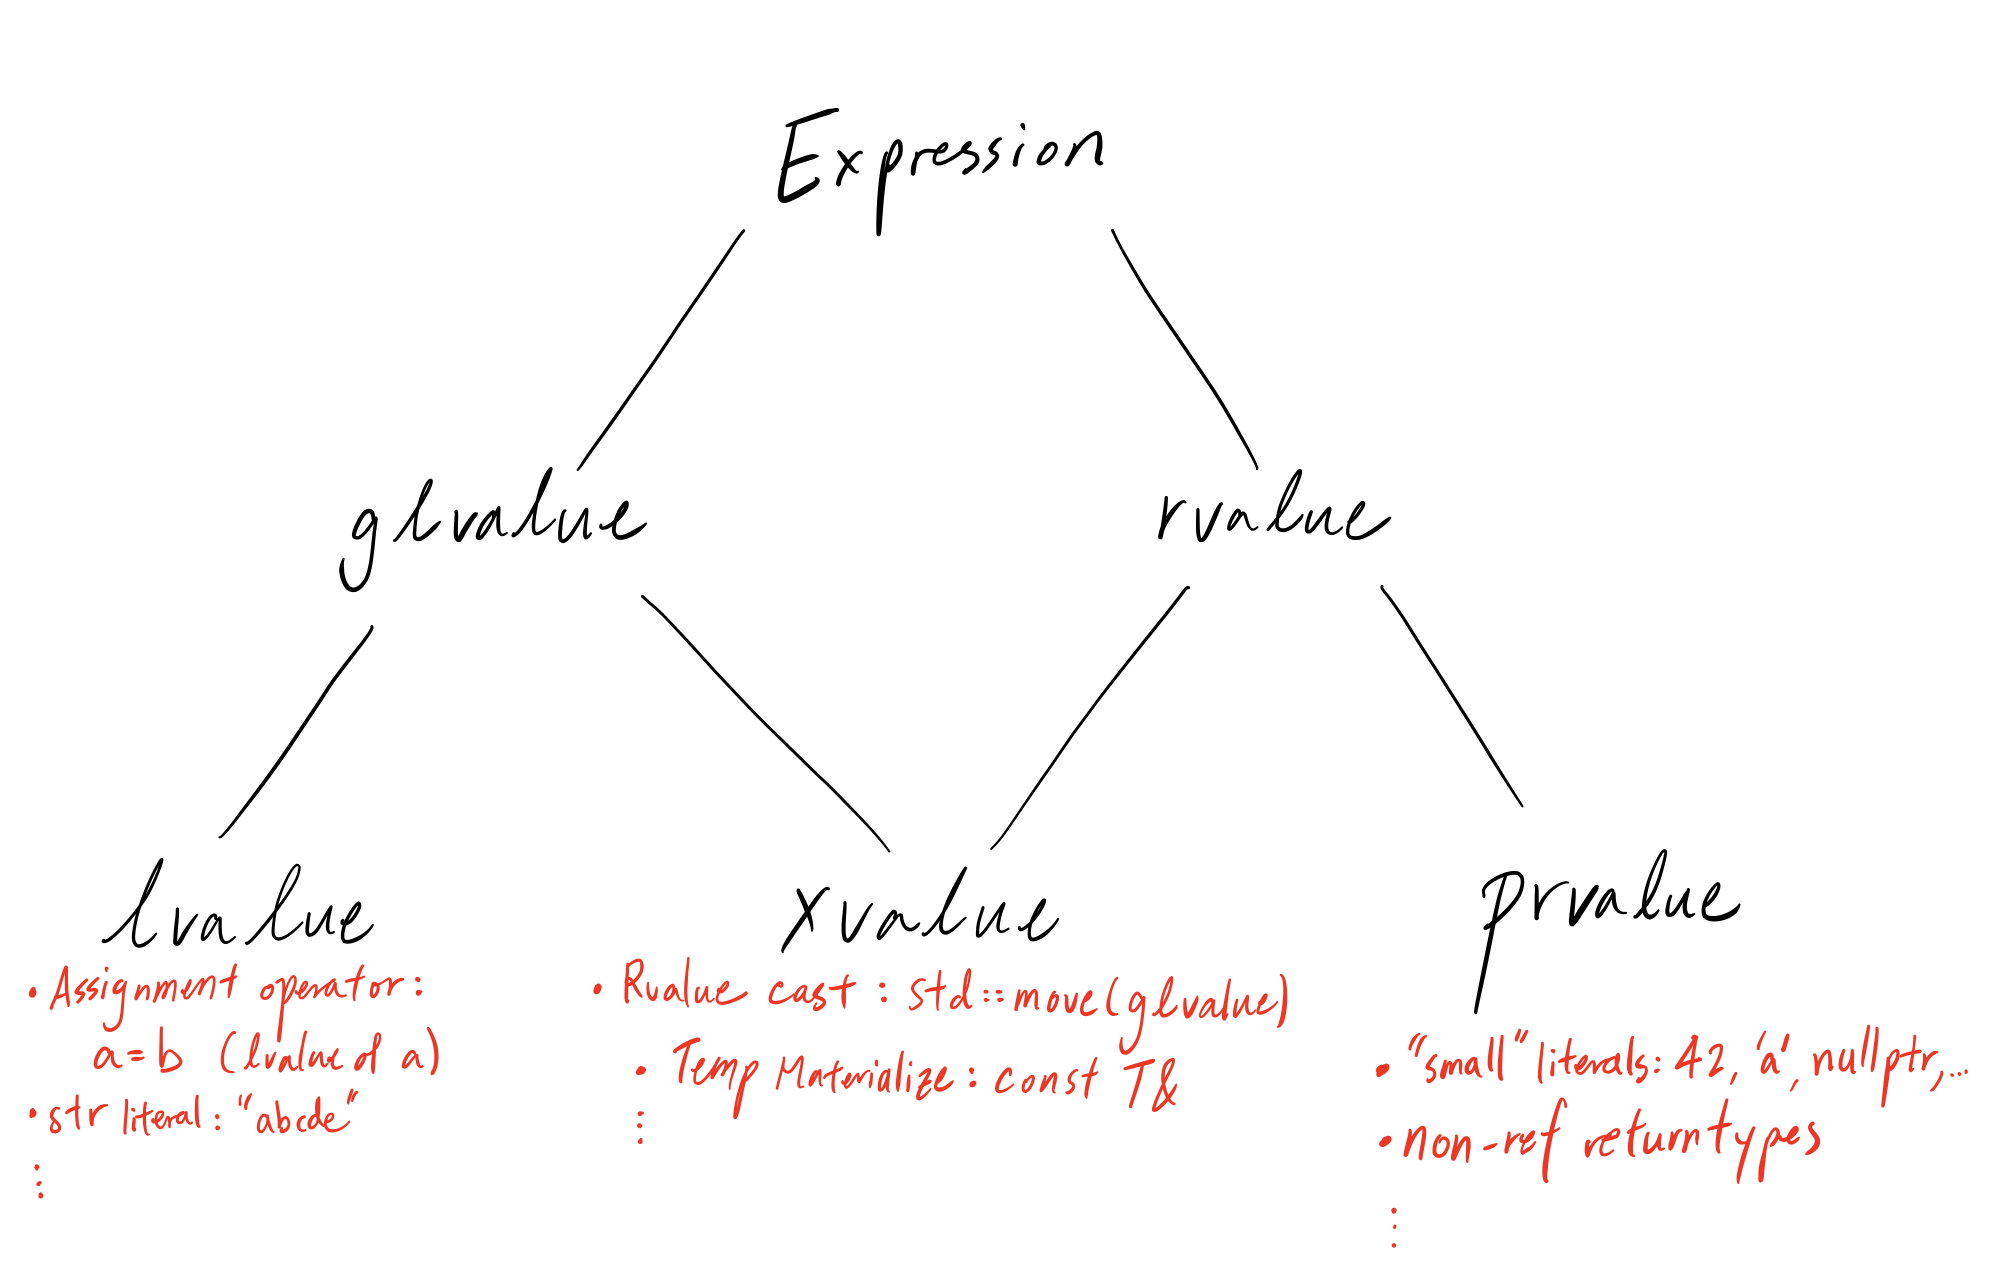 Expression
glvalue
rvalue
lvalue
xvalue
prvalue
• Assignment operator:
a=b (lvalue of a)
• str literal: "abcde"
⋮
• Rvalue cast: std::move(glvalue)
• Temp Materialize: const T&
⋮
• "small" literals: 42, 'a', nullptr,...
• non-ref return types
⋮